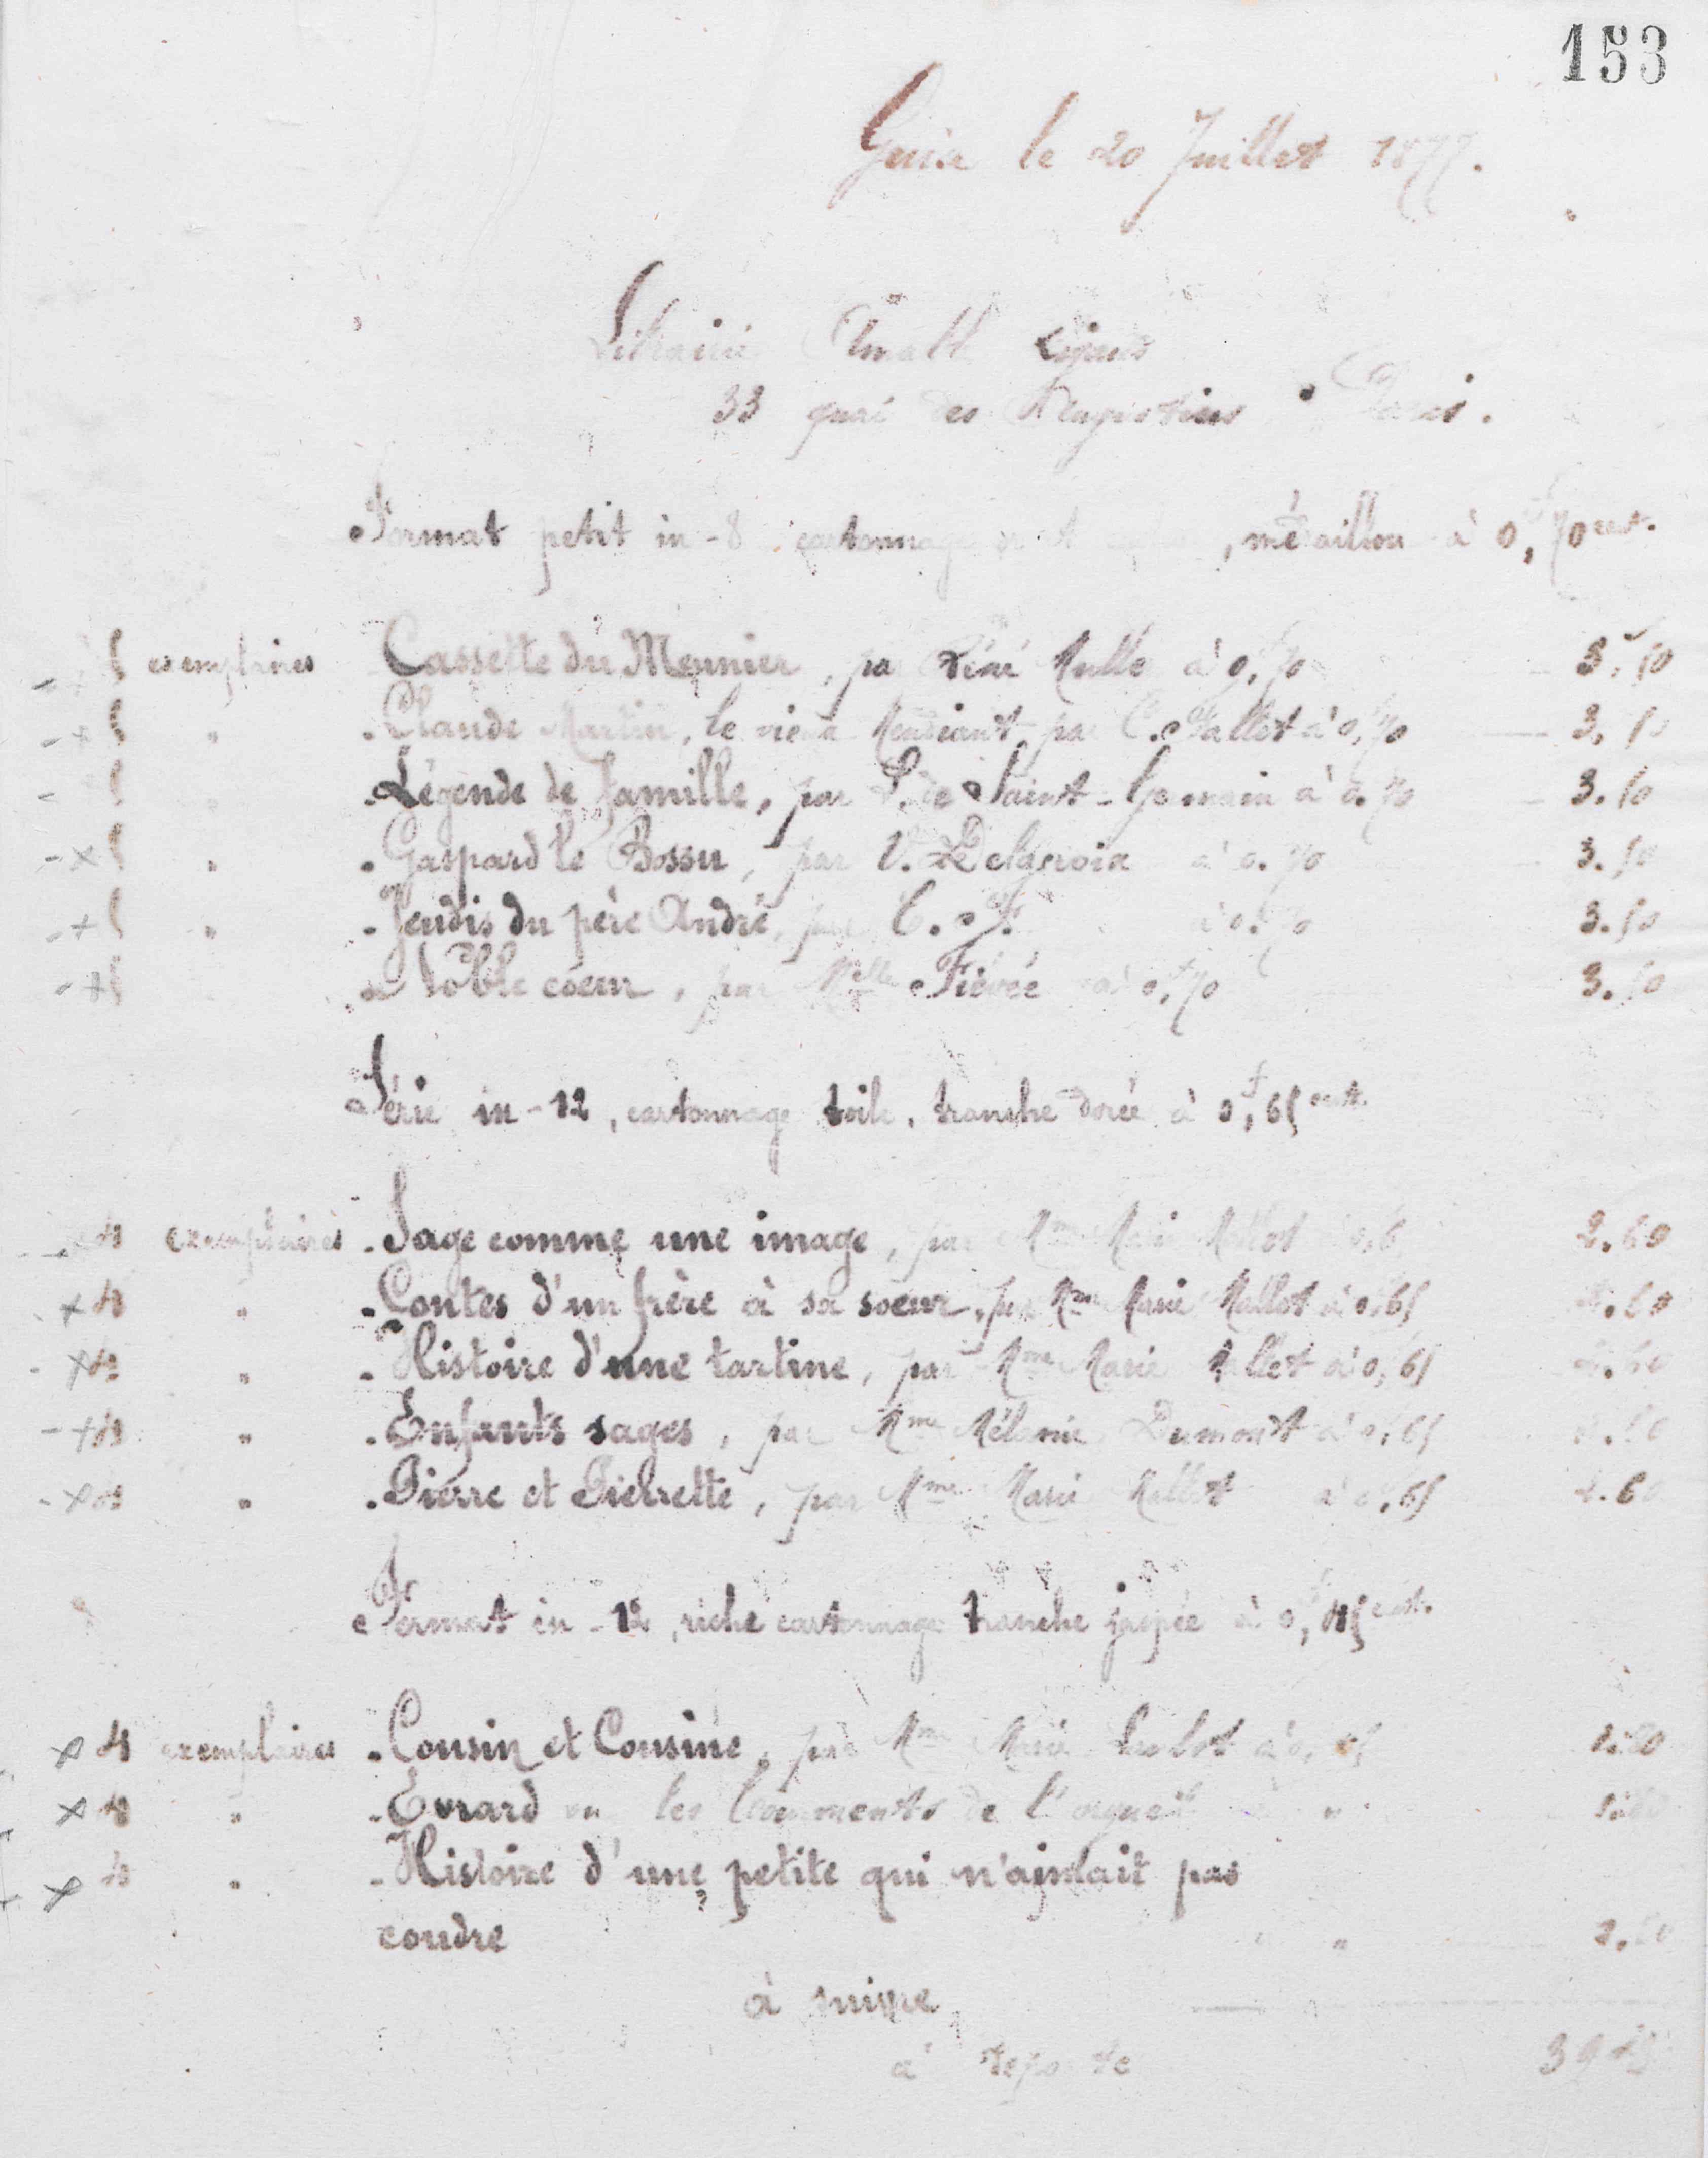 153
Guise le 20 Juillet 1877.
Librairie
33 quai des Augustins Paris.
Format petit in-8 cartonnage , médaillon à 0,70 cent.
5 exemplaires Cassette du Meunier, par René à 0,70 3,50
5 " Claude Martin, le vieux Mendiant par C. Fallet à 0,70 3,50
5 Légende de Famille, par J. de Saint-Germain à 0.70 3.50
5 " Gaspard le Bossu, par V. Delacroix à 0.70 3.50
5 " Jeudis du père André, par C. F. à 0.70 3.50
5 Noble coeur, par Melle Fiévée à 0,70 3.50
Série in-12, cartonnage toile, tranche dorée à 0f,65 cent.
4 exemplaires Sage comme une image, par Mme Marie 2.60
4 " Contes d'un frère à sa soeur, par Mme Marie Mallet à 0,65 2.60
4 " Histoire d'une tartine, par Mme Marie Mallet à 0,65 2.60
4 " Enfants sages, par Mme Mélanie Dumont à 0,65 2.60
4 " Pierre et Pierrette, par Mme Marie Mallet à 0,65 2.60
Format in-12, riche cartonnage tranche jaspée à 0f,45 cent.
4 exemplaires Cousin et Cousine, par Mme Marie 1.80
4 " Evrard ou les de l'orgueil " 1.80
4 " Histoire d'une petite qui n'aimait pas
coudre " 1.80
à suivre
à reporter 39